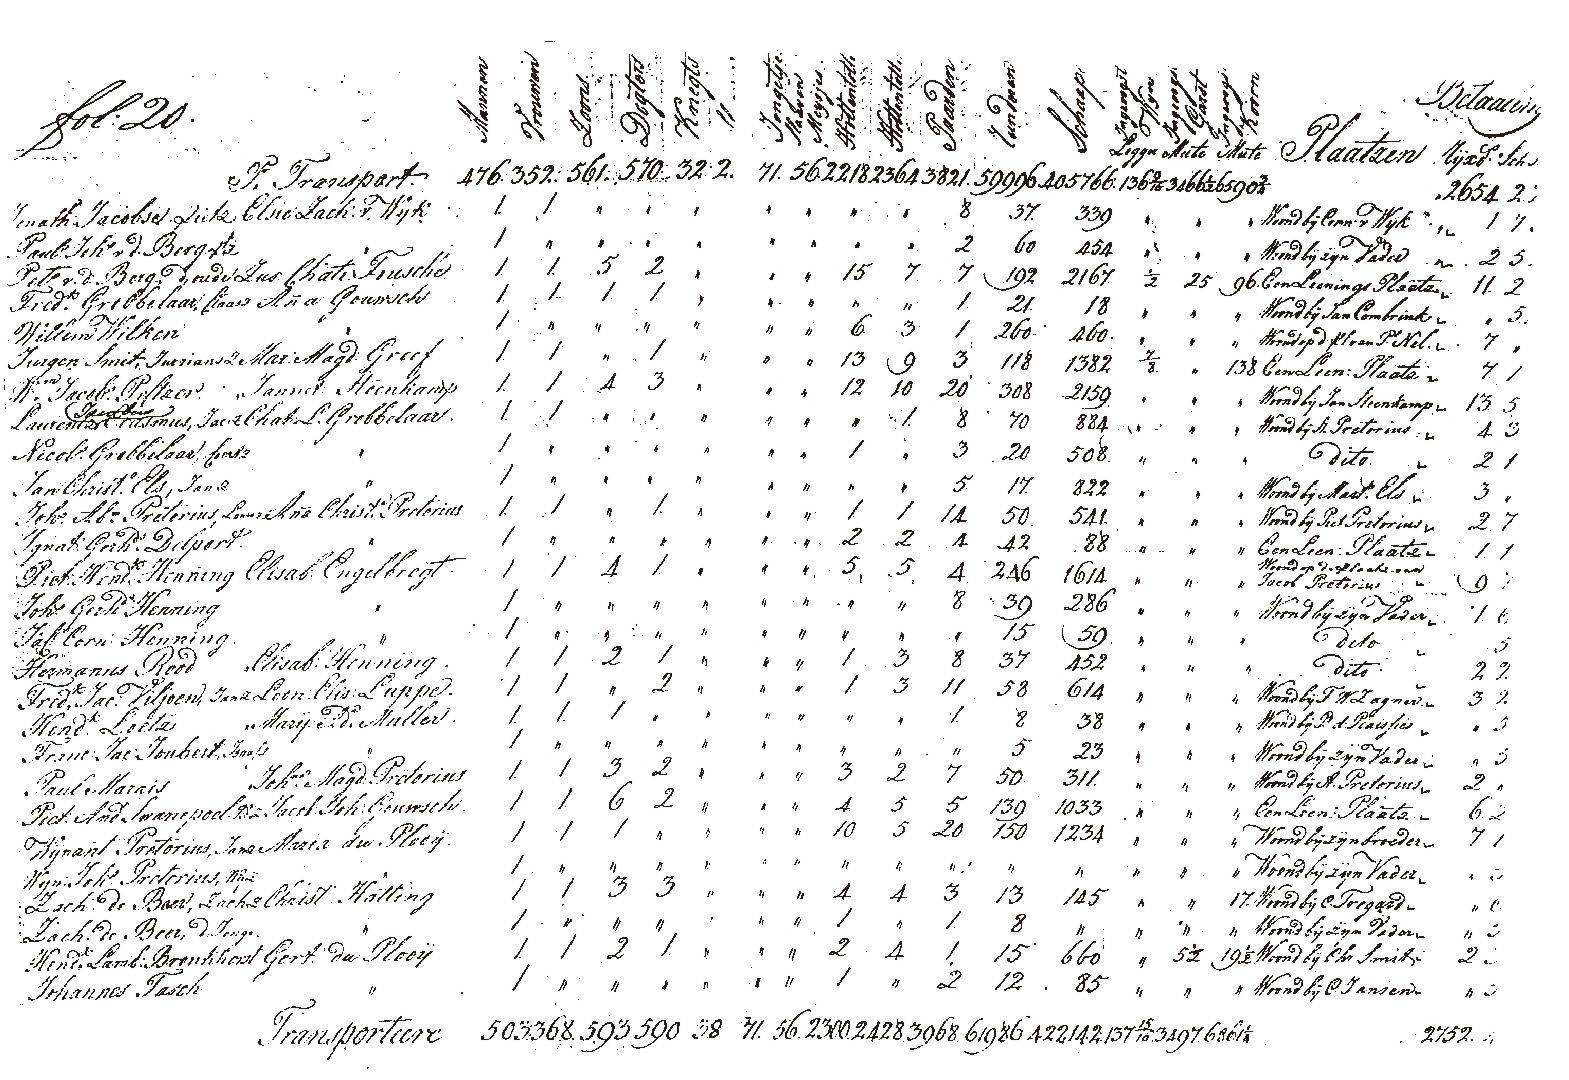 fol: 20.
Mannen Vrouwen Zoons Dogters Knegts Jongetje Slaven Meysjes Hottentott: Hottentott: Paarden Runderen Schaap Legger Wyn Mute Gerst Mute Koorn Plaatzen Betaaling Ryxds: Sch:
P. Transport. 476. 352. 561. 570. 32. 2. 71. 56. 2218 2364 3821. 59996. 405766. 2654 2
Jacobse Elsie Zach: v Wyk 1 1 " " " " " " " 8 37. 339 " " " Woond by Corn: v Wyk " 1 7.
Paul: Johs v: d: Berg 1 " " " " " " " " 2 60 454 " " " Woond by zyn Vader " 2 5.
Petr: v: d: Berg, d'oude 1 1. 5 2 " " " 15 7 7 192 2167 ½ 25 96. Een Leenings Plaatz " 11. 2
Fredk Grobbelaar, Claas Anna Gouwsch 1 1 1 1 " " " " " 1 21. 18 " " " Woond by Jan Combrink " " 5.
Willem Wilken " 1 " " " " " " 6 3 1 260. 460. " " " Woond op d' pl van P: Nel. " 7 "
Jurgen Smit, Jurians Mar: Magd: Greef 1 1 " 1 " " " 13 9 3 118 1382 " 138 Een Leen: Plaatz " 7 1
Wm Jacobs Peltzer Jannet Steenkamp 1 1 4 3 " " " 12 10 20 308 2159 " " " Woond by Jan Steenkamp " 13 5
Laurens Jacobus Erasmus, Jacz Chat: L: Grobbelaar. 1 1 " " " " " " 1. 8 70 884 " " " Woond by A. Pretorius " 4 3
Nicols Grobbelaar, " 1 " " " " " " 1 " 3 20 508 " " " dito. " 2 1
Jan Christn Els, Janz " 1 " " " " " " " " 5 17. 822 " " " Woond by Mart: Els " 3 "
Johs Abr: Pretorius, Anna Christn Pretorius 1 1 " 1. " " " 1 1 14 50. 541. " " " Woond by Piet Pretorius " 2 7
Ignat: Gerhs Delport. " 1 " " " " " " 2 2 4 42 88 " " " Een Leen: Plaatz " 1 1
Piet: Hendk Henning Elisab: Engelbregt 1 1 4 1 " " " 5. 5. 4. 246 1614 " " " Woond op d: plaatz van Jacob Pretorius " 9
Johs Gerhs Henning " 1 " " " " " " " " 8 39 286 " " " Woond by zyn Vader " 1 6
Corn: Henning. " 1 " " " " " " " " " 15 59. " " " dito " 5
Hermanus Rood Elisab: Henning. 1 1 2 1 " " " 1 3 8 37 452 " " " dito 2 2.
Fredk Jac: Viljoen, Janz Leen: Elis: Luppe. 1 1 " 2 " " " 1 3 11 58 614 " " " Woond by F. W. Zagner " 3 2
Hendk Loetz Marij Muller. 1 1. 1 " " " " " " 1. 8 38 " " " Woond by P. d: Plassies " " 5
Franc: Jac: Joubert, " 1 " " " " " " " " " 5 23 " " " Woond by zyn Vader " " 3
Paul Marais Johna Magd: Pretorius 1. 1 3 2 " " " 3 2 7 50. 311. " " " Woond by A. Pretorius " 2 "
Piet: And: Swanepoel. Jacob: Joh: Gouwsch. 1 1 6 2 " " " 4 5 5 139 1033 " " " Een Leen: Plaatz " 6. 2
Wynant Pretorius, Janz Maria du Plooy. 1 1 1 " " " " 10 5 20 150 1234 " " " Woond by zyn broeder " 7 1
Wyn: Johs Pretorius, 1 " " " " " " " " " " " " " " Woond by zyn Vader " "
Zach: de Beer, Zachz Christ: Hatting 1 1 3 3 " " " 4 4 3 13 145 " " 17. Woond by C. Tregard " 6
Zach: de Beer, d' Jonge. " 1 " " " " " " 1 " 1. 8 " " " " Woond by zyn Vader " "
Hendk Lamb: Bronkhorst Gert: du Plooij 1 1 2 1 " " " 2 4 1. 15 660 " 5½ 19½ Woond by Chr: Smit " 2
Johannes Tasch " 1 " " " " " " 1 " 2 12 85 " " " Woond by C Jansen " "
Transporteere 503. 368. 593. 590 38 71. 56. 2300. 2428. 3968. 61986 422142. 2752.